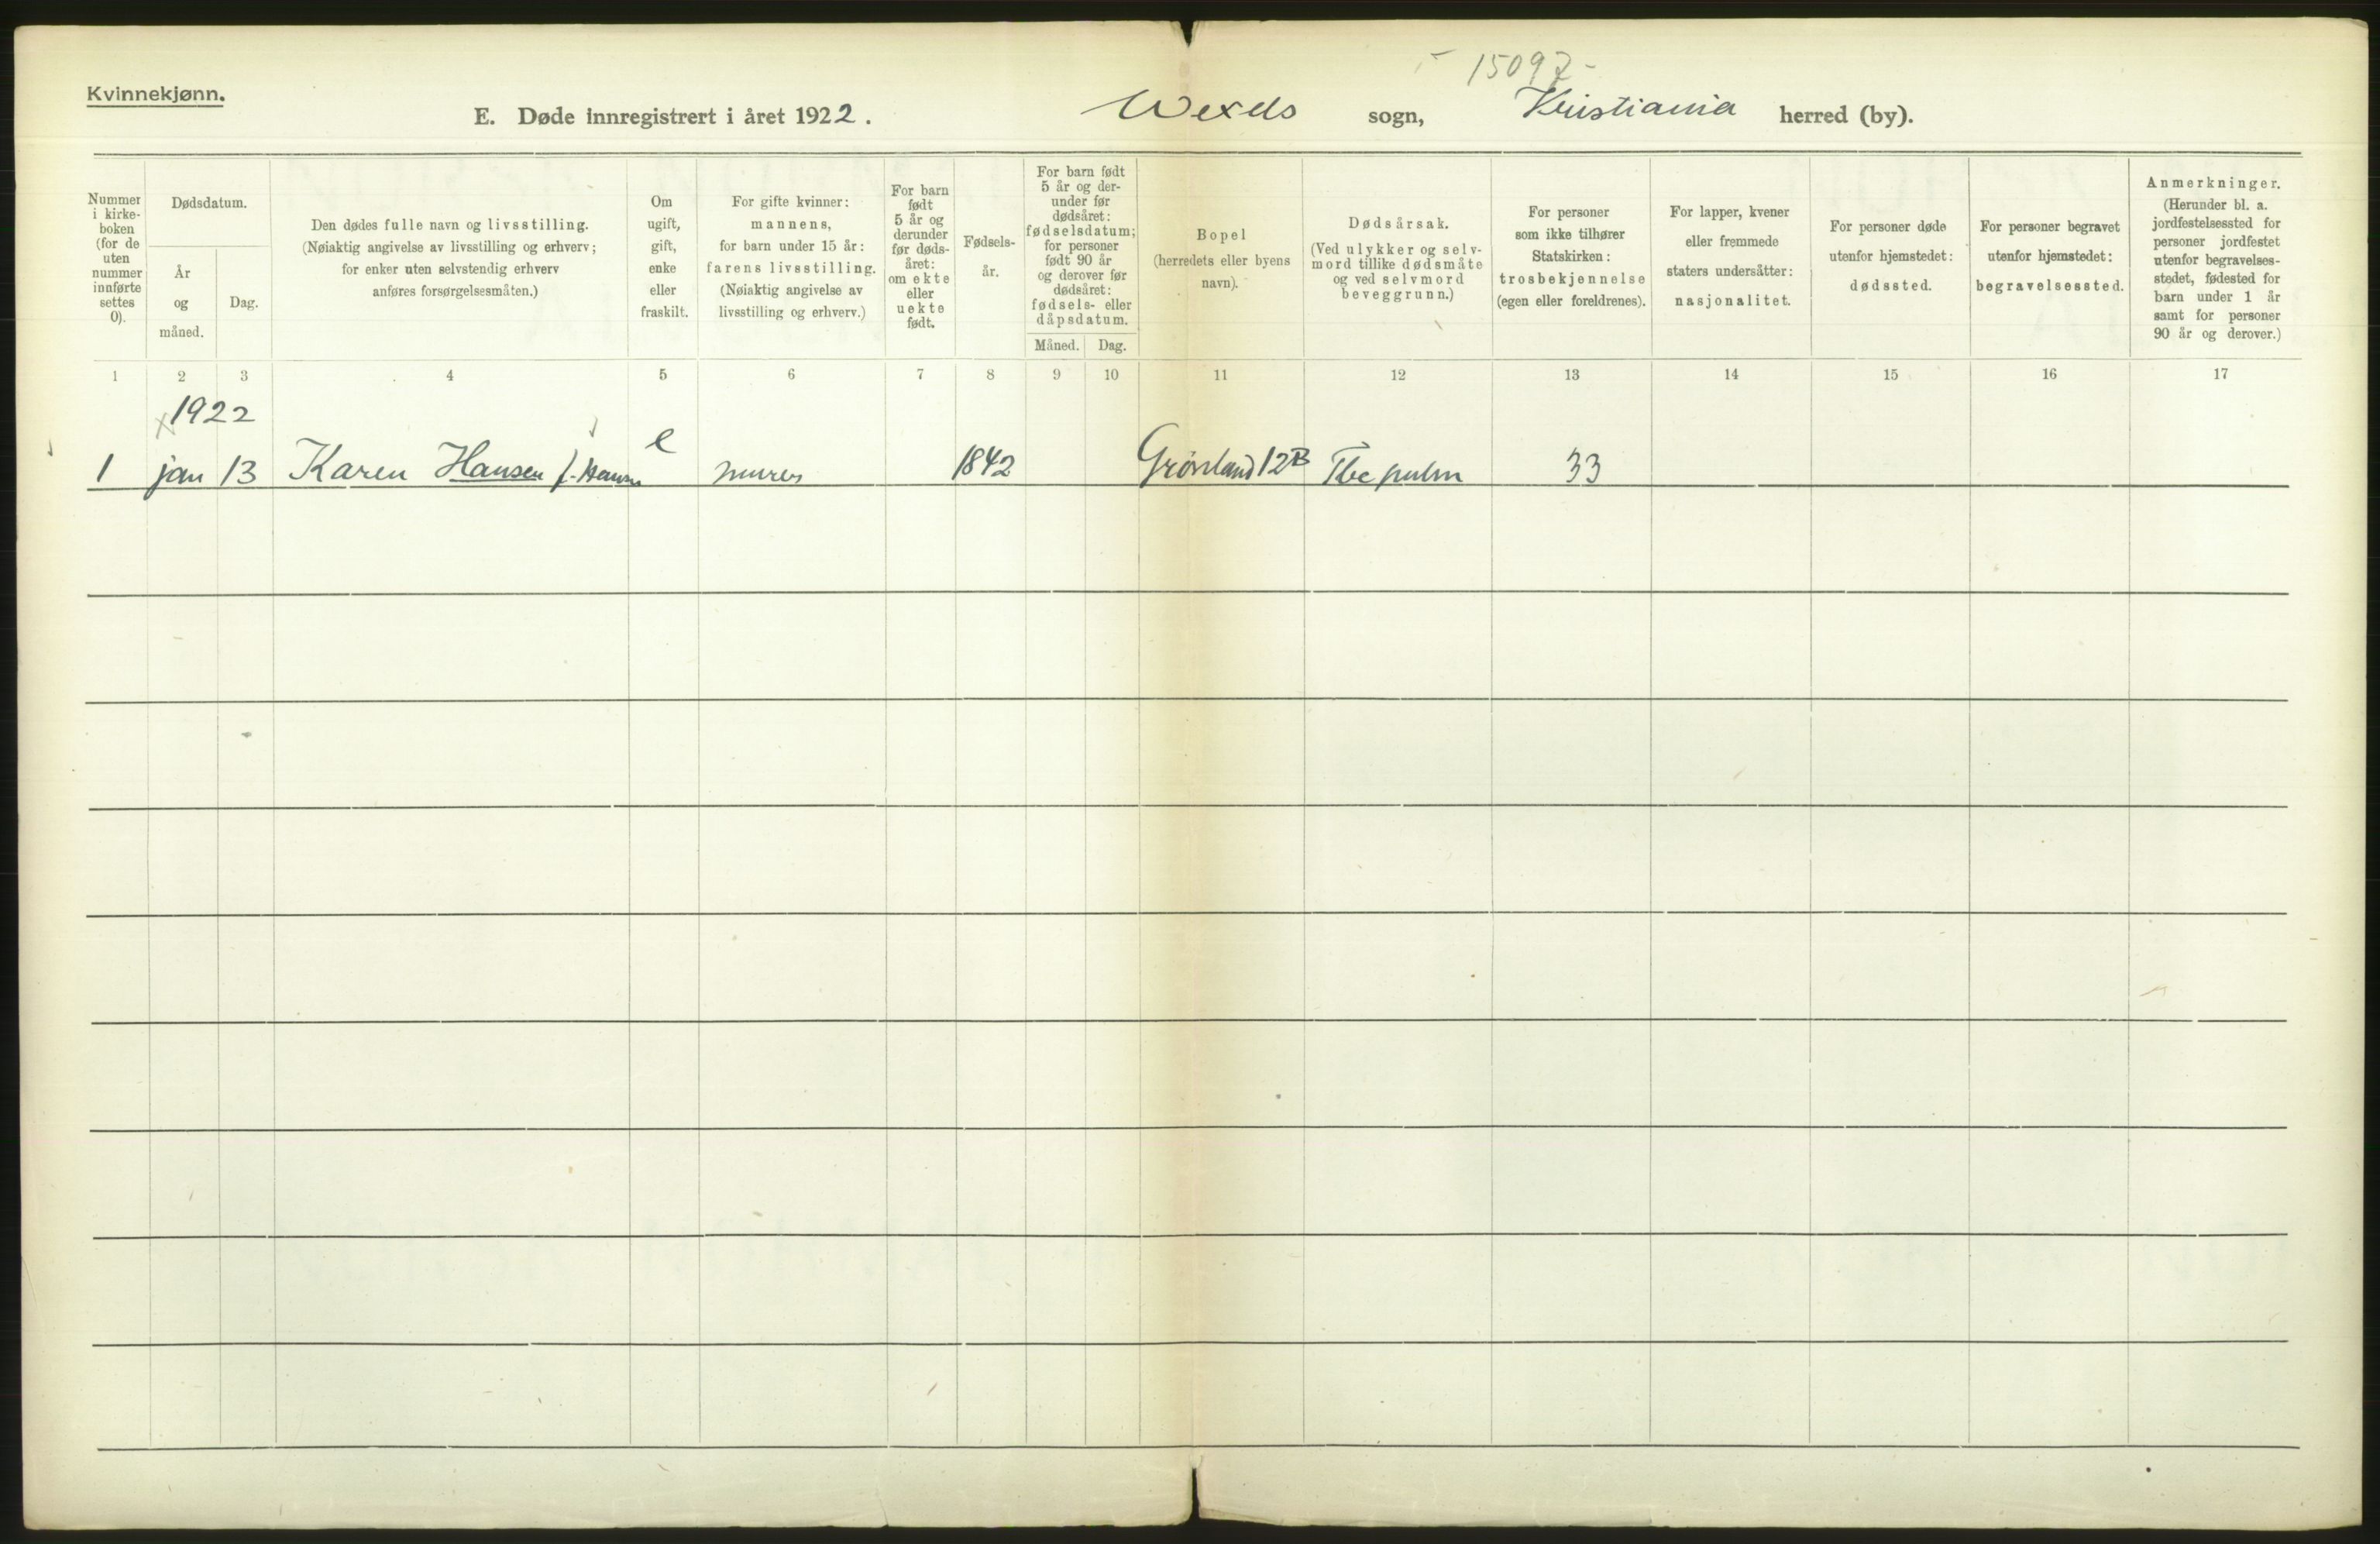 15097
Kvinnekjønn.
E. Døde innregistrert i året 1922. Wexels sogn, Kristiania herred (by).
Nummer i kirke-boken (for de uten nummer innførte settes 0).
Dødsdatum.
År og måned.
Dag.
Den dødes fulle navn og livsstilling.
(Nøiaktig angivelse av livsstilling og erhverv;
for enker uten selvstendig erhverv
anføres forsørgelsesmåten.)
Om
ugift,
gift,
enke
eller
fraskilt.
For gifte kvinner:
mannens,
for barn under 15 år:
farens livsstilling.
(Nøiaktig angivelse av
livsstilling og erhverv.)
For barn
født
5 år og
derunder
før døds-
året:
om ekte
eller
uekte
født.
Fødsels-
år.
For barn født
5 år og der-
under før
dødsåret:
fødselsdatum;
for personer
født 90 år
og derover før
dødsåret:
fødsels- eller
dåpsdatum.
Måned. Dag.
Bopel
(herredets eller byens
navn).
Dødsårsak.
(Ved ulykker og selv-
mord tillike dødsmåte
og ved selvmord
beveggrunn.)
For personer
som ikke tilhører
Statskirken:
trosbekjennelse
(egen eller foreldrenes).
For lapper, kvener
eller fremmede
staters undersåtter:
nasjonalitet.
For personer døde
utenfor hjemstedet:
dødssted.
For personer begravet
utenfor hjemstedet:
begravelsessted.
Anmerkninger.
(Herunder bl. a.
jordfestelsessted for
personer jordfestet
utenfor begravelses-
stedet, fødested for
barn under 1 år
samt for personer
90 år og derover.)
1 2 3 4 5 6 7 8 9 10 11 12 13 14 15 16 17
1922
1 jan 13 Karen Hansen f. Hansen e murer 1842 Grønland 12B Tbc pulm 33